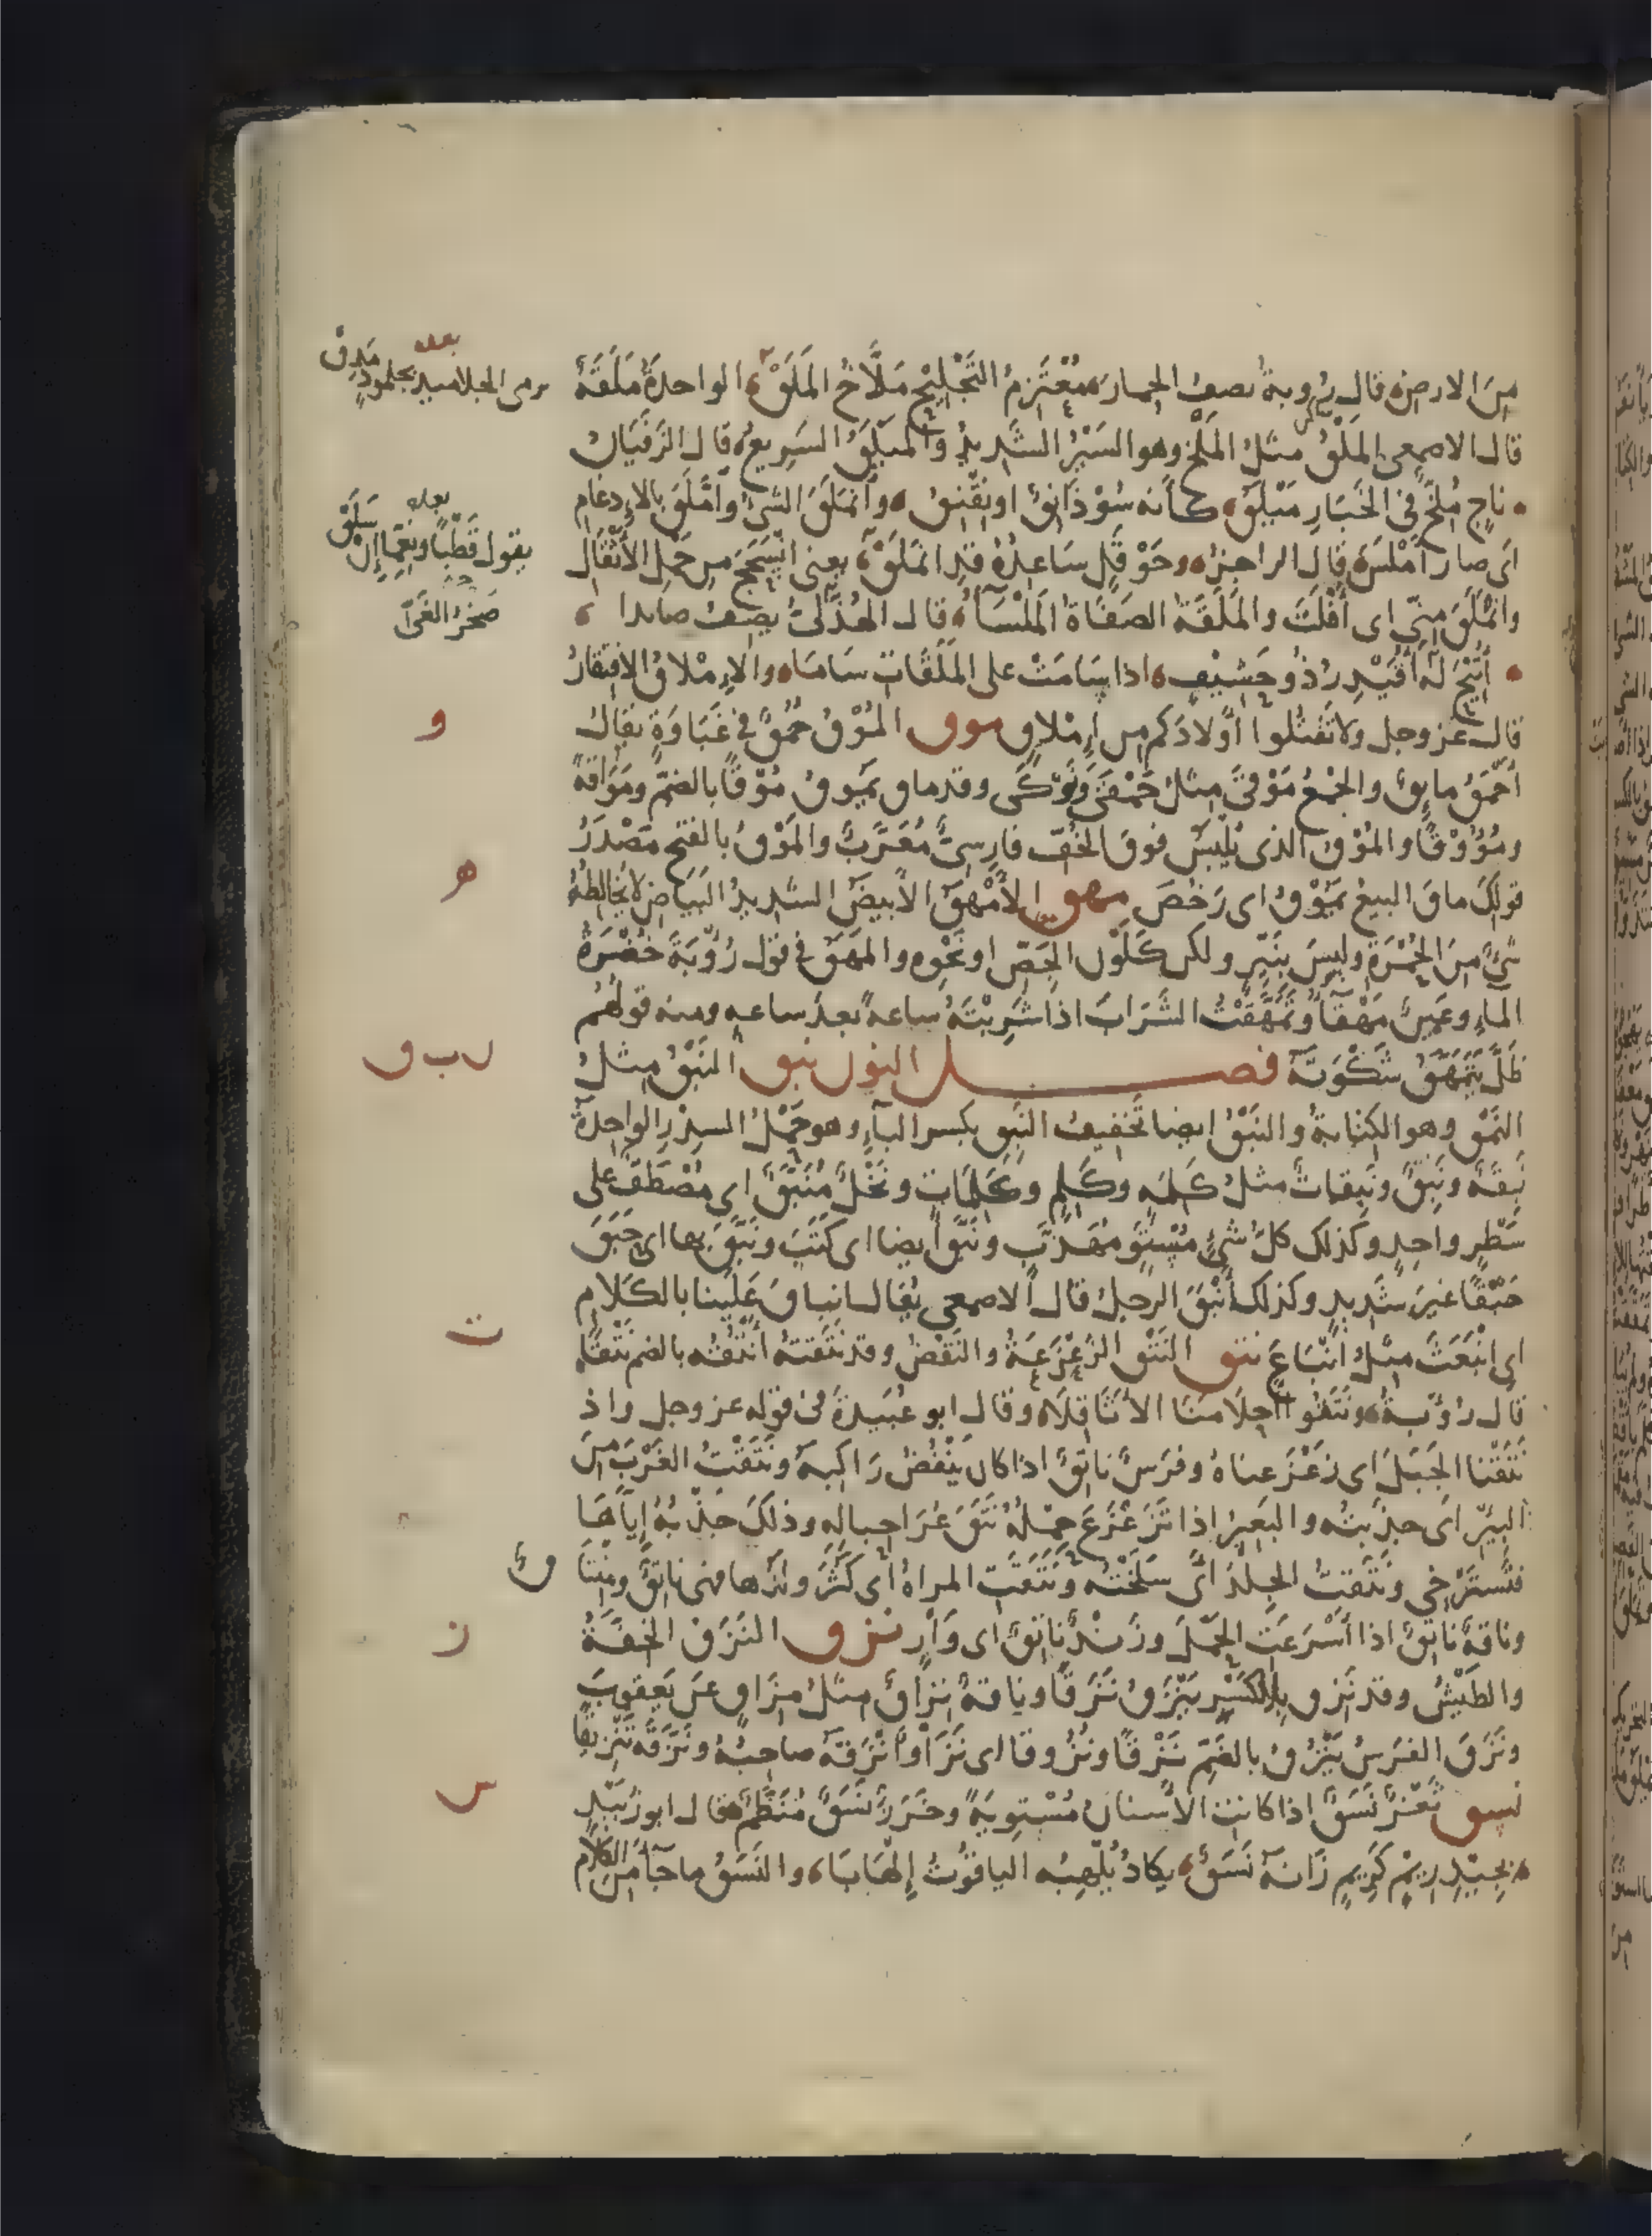 مِنَ الارض قال رُوبة يصف الحمار مُعْتَزِمُ التَّجْلِيحِ مَلَّاخُ المَلَقْ الواحدةُ مَلَقَةٌ
يرمى الجلاميد بجلمودٍ مِدَقّ
بعده
قال الاصمعى المَلْقُ مثلُ المَلْخِ وهو السَيْرُ الشديدُ والمَيْلَقُ السَرِيعُ قال الزَفَيَانُ
ناجٍ مُلِحٌّ فى الخَبَارِ مَيْلَقُ كأنه سُوْذَانِقٌ او نِقْنِقُ وانمَلَقَ الشىُ وامَّلَقَ بالاِدغام
بعده
يقول قَطْبًا ونِعِمَّا إِنْ سَلَقْ
اى صار اَمْلَسَ قال الراجز وحَوْقَلٍ سَاعِدُهُ قدِ انمَلَقْ يعنى انْسَحَجَ من حَمْلِ الأثْقَالِ
وانْمَلَقَ مِنّى اى أَفْلَتَ والمَلَقَةُ الصَفَاةُ المَلْسَآءُ قال الهُذَلىُّ يصف صايدا
صَخْرُ الغَىّ
أُتِيْحَ لَهُ أُقَيْدِرُ ذُو حَشِيْفٍ اذا سَامَتْ على المَلَقَاتِ سَامَا والاِمْلاقُ الاِفتِقَارُ
قال عز وجل ولا تَقْتُلوا اَوْلادَكم من اِمْلاقٍ موق المُوْقُ حُمْقٌ فى غَبَاوَةٍ يقال
و
أَحْمَقُ مايِقٌ والجمْعُ مَوْقَى مثلُ حَمْقَى ونَوْكَى وقد ماق يَمُوقُ مُوْقًا بالضمّ ومَوَاقَةً
ومُؤُوْقًا والمُوْقُ الذى يُلْبَسُ فوقَ الخُفِّ فارِسىٌّ مُعَرَّبٌ والمَوْقُ بالفتح مَصْدَرُ
قولك ماقَ البيعُ يَمُوْقُ اى رَخُصَ مهق الاَمْهَقُ الاَبيضُ الشديدُ البَيَاضِ لا يُخالِطُهُ
ه
شىٌ مِنَ الحُمْرَةِ وليسَ بِنَيِّرٍ ولكن كَلَوْنِ الجَصِّ او نَحْوِهِ والمَهَقُ فى قول رُؤْبَةَ خُضْرَةُ
المآءِ وعَيْنٌ مَهْقَآءُ وتَمَهَّقْتُ الشَّرَابَ اذا شَرِبْتَهُ ساعةً بعد ساعه ومنه قولهُم
ظَلَّ يَتَمَهَّقُ شَكْوَتَهُ فصل النون نبق النَبْقُ مثلُ
ن ب ق
النَمْقِ وهو الكِتابةُ والنَبْقُ ايضا تخفيف النَبِقِ بكسر البآءِ وهو حَمْلُ السِدْرِ الواحِدَةُ
نَبِقَةٌ ونَبِقٌ ونَبِقاتٌ مثلُ كَلِمَهٍ وكَلِمٍ وكَلِمَاتٍ ونخْلٌ مُنَبَّقٌ اى مُصْطَفٌّ على
سَطْرٍ واحِدٍ وكذلك كلُّ شىٍ مُسْتَوٍ مُهَذَّبٍ ونَبَّقَ ايضا اى كَتَبَ ونَبَّقَ بها اى حَبَقَ
حَبْقًا غيرَ شديدٍ وكذلك أنْبَقَ الرجلُ قال الاصمعى يُقال انْبَاقَ عَلَيْنا بالكَلامِ
اى انْبَعَثَ مثلُ انْبَاعَ نتق النَتْقُ الزَعْزَعَةُ والنَقْضُ وقد نَتَقْتهُ اَنْتُقُه بالضم نَتْقًا
ت
قال رُؤْبةُ ونَتَقُوا احلامَنَا الاَثَاقِلَا وقال ابو عُبَيدةَ فى قوله عز وجل واذ
نَتَقْنا الجَبَلَ اى زَعْزَعناهُ وفَرَسٌ ناتِقٌ اذا كان يَنْفُضُ رَاكِبَهُ ونَتَقْتُ الغَرْبَ مِنَ
البيرِ اى جذَبتُه والبَعِيرُ اذا تَزَعْزَعَ حِمْلُهُ نَتَقَ عُرَا حِبالِهِ وذلك جَذْبُهُ إِيَّاهَا
فتَسْتَرْخى ونَتَقتُ الجِلْدَ اى سَلَخْتُه ونَتَقَتِ المراةُ اى كَثُرَ ولَدُها فهى ناتِقٌ ومِنْتَاقٌ
وناقةٌ ناتِقٌ اذا أَسْرَعَتِ الحَمْلَ وزَنْدٌ ناتِقٌ اى وَارٍ نزق النَزَقُ الخِفَّةُ
ز
والطَيْشُ وقد نَزِقَ بالكَسْرِ يَنْزَقُ نَزَقًا وناقةٌ نِزَاقٌ مثلُ مِزَاقٍ عن يَعقوبَ
ونَزَقَ الفرسُ يَنْزُقُ بالضَمّ نَزْقًا ونُزُوقا اى نَزَا وأَنْزَقَهُ صاحِبُهُ ونَزَّقَهُ تَنْزِيقًا
نسق ثَغْرٌ نَسَقٌ اذا كانت الاَسنانُ مُسْتوِيَةً وخَرَزٌ نَسَقٌ مُنَظَّمٌ قال ابو زُبَيْدٍ
س
بجِيْدِ رِيْمٍ كَرِيمٍ زَانَهُ نَسَقٌ يكادُ يُلْهِبُه الياقُوتُ إِلْهَابَا والنَسَقُ ما جآ مِن الكلامِ